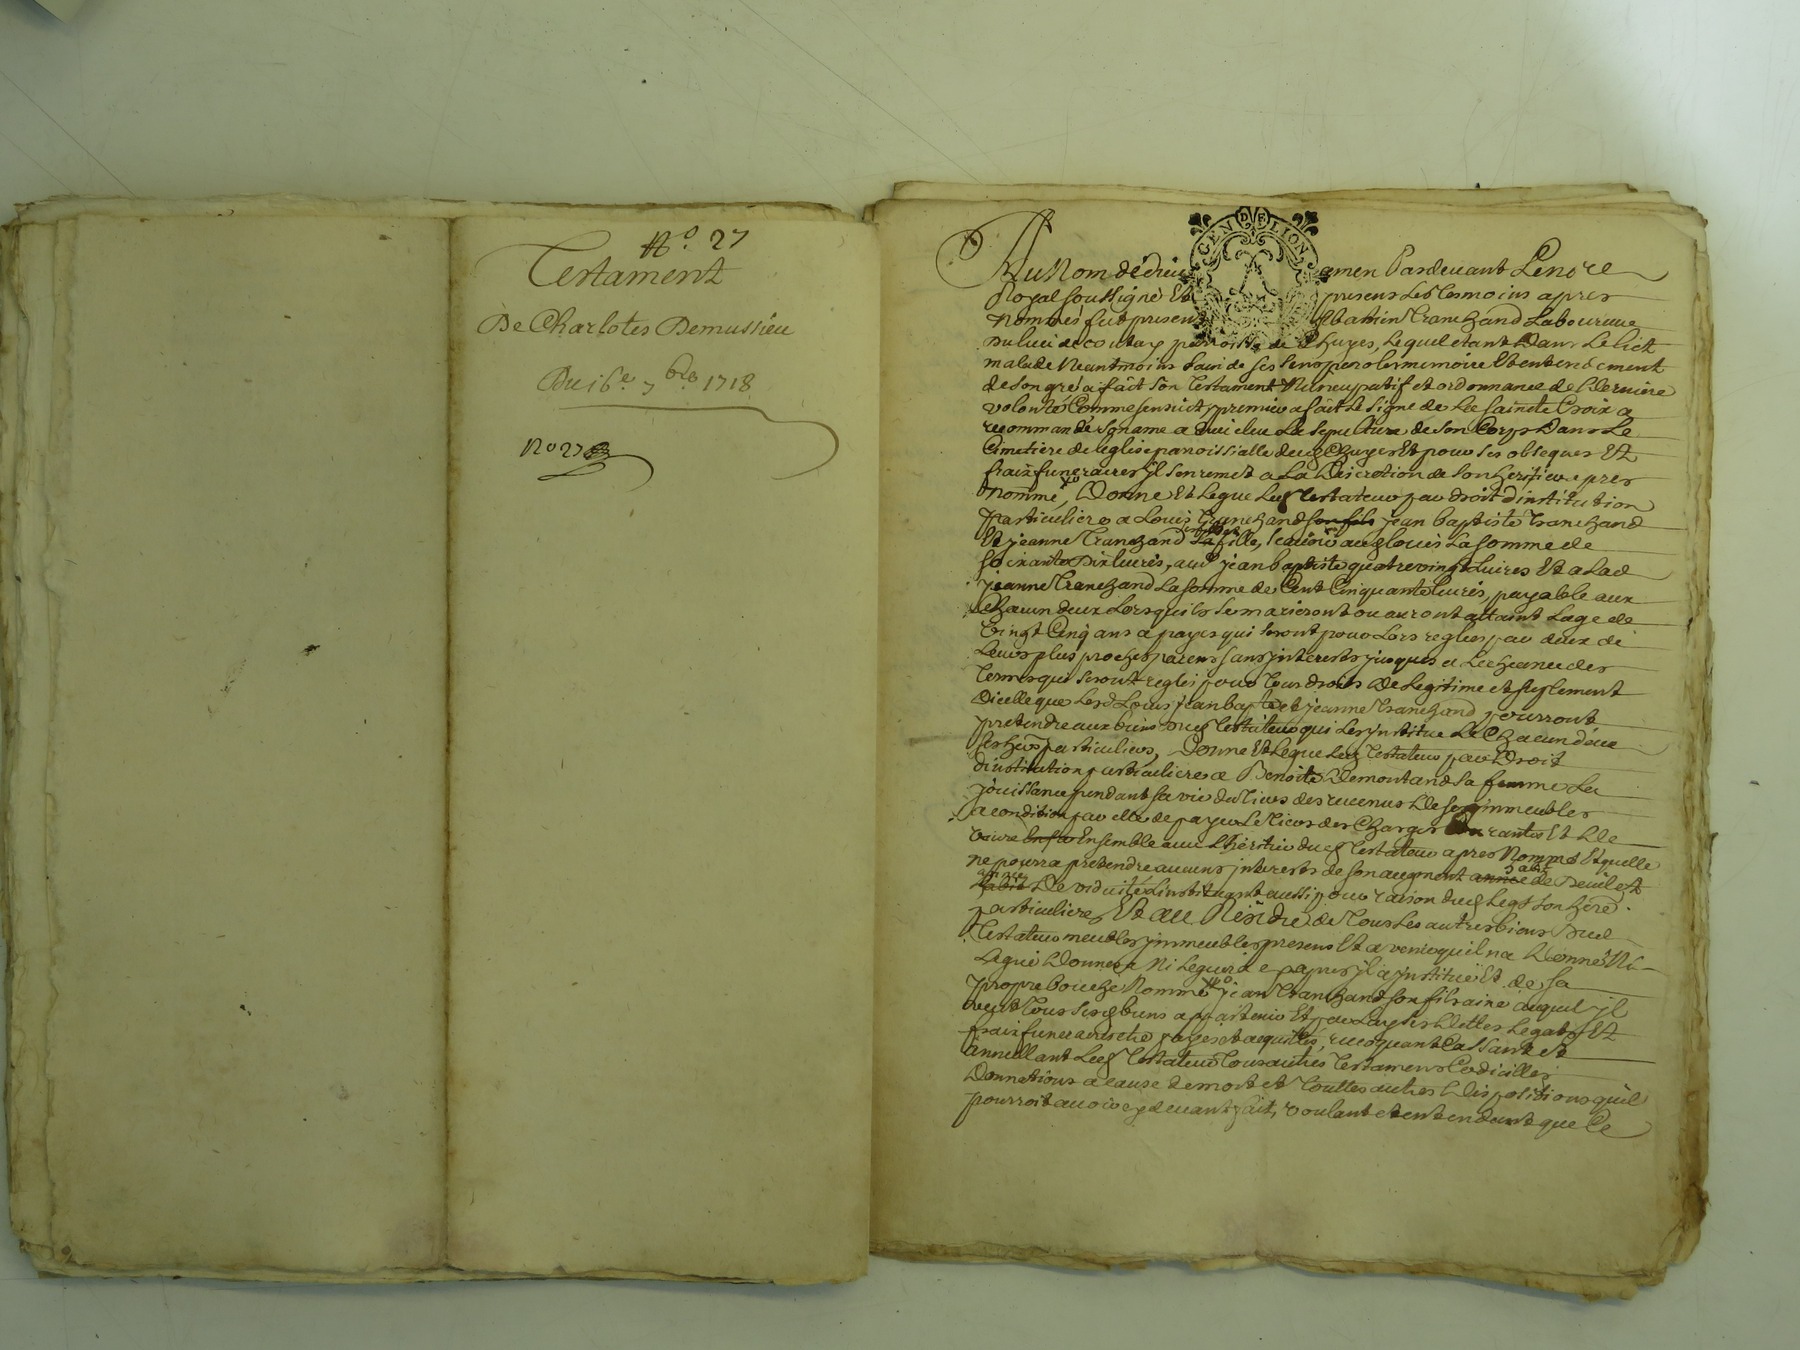 No. 27
Testament
De Charlotes Demussieu
Du 16e 7bre 1718
No 27
GEN DE LION
Au Nom de dieu amen Pardevant Lenore
Royal soussigné Et presens Les tesmoins apres
Nommés fut present Ebastien Tranchand Laboureur
du lieu de coutay parroisse de Chuyes, Lequel etant Dans Le lict
malade Neantmoins sain de ses sens parolles memoire Et entendement
de son gré a fait son Testament Nuncupatif et ordonnance de Derniere
volonté Comme sensuict premier a fait Le signe de La saincte Croix a
recommandé son ame a Dieu elu La sepulture de son Corps Dans Le
Cimetiere de leglise parroissialle dud Chuyes Et pour ses obseques Et
fraix funeraires jl sen remet a La Discretion de son heritier apres
nommé, Donne Et Legue Led Testateur par droit dinstitution
particuliere a Louis Tranchand son fils jean baptiste Tranchand
Et jeanne Tranchand sa fille, scavoir aud Louis La somme de
soixante Dix Livres, aud jean baptiste quatre vingt Livres Et a Lad
jeanne Tranchand La somme de Cent Cinquante Livres, payable aux
Chacun deux Lorsquils se marieront ou auront attaint Lage de
Vingt Cinq ans a payes qui seront pour Lors reglees par deux de
Leurs plus proches parens sans jnterests jusques a Lecheance des
Termes qui seront regles pour tous droits de Legitime et suplement
Dicelle que Lesd Louis jean bapte et jeanne Tranchand pourront
pretendre aux biens dud Testateur qui Les jnstitue Le Chacun deux
ses hers particuliers, Donne Et Legue Led Testateur par Droit
dinstitution particuliere a Benoite Demontand sa femme La
jouissance pendant sa vie du Tiers des revenus De ses jmmeubles
a condition par elle de payer Le Tiers des Charges Et De
vivre Ensemble avec Lheritier dud Testateur apres Nommé Et quelle
ne pourra pretendre aucuns jnterests de son augment habit de Deuil et
année De viduité Linstituant aussi pour raison dud Legat son here
particuliere, Et au Residu de Tous Les autres biens Dud
Testateur meubles jmmeubles presens Et a venir quil na Donné Ni
Legué Donnera Ni Leguera cy apres jl a jnstitué Et de sa
propre bouche Nommé jean Tranchand son fils ainé auquel jl
veut Tous sesd biens appartenir Et par Luy ses Dettes Legats Et
fraix funeraires etre payes et acquittés, revoquant Cassant et
annullant Led Testateur Tous autres Testamens Codicilles
Donnations a cause de mort et Touttes autres Dispositions quil
pourroit avoir cy devant fait, voulant et entendant que Ce